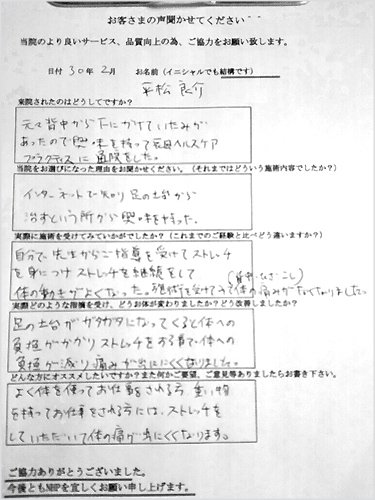 お客さまの声聞かせてください
当院のより良いサービス、品質向上の為、ご協力をお願い致します。
日付 30年 2月 お名前（イニシャルでも結構です）
平松 良介
来院されたのはどうしてですか？
元々背中から下にかけていたみが
あったので興味を持って ヘルスケア
プラクティスに通院をした。
当院をお選びになった理由をお聞かせください。（それまではどういう施術内容でしたか？）
インターネットで知り 足の土台から
治すという所から興味を持った。
実際に施術を受けてみていかがでしたか？（これまでのご経験と比べどう違いますか？）
自分で先生からご指導を受けてストレッチ
を身につけ ストレッチを継続をして （背中・ひざ・こし）
体の動きがよくなった。施術を受けてみて体の痛みがなくなりました。
実際どのような指摘を受け、どうお体が変わりましたか？どう改善しましたか？
足の土台がガタガタになってくると体への
負担がかかり ストレッチをする事で体への
負担が減り 痛みが出にくくなりました。
どんな方にオススメしたいですか？また何かご要望、ご意見等ありましたらお書き下さい。
よく体を使ってお仕事をされる方 重い物
を持ってお仕事をされる方には、ストレッチを
していただいて体の痛が出にくくなります。
ご協力ありがとうございました。
今後ともNHPを宜しくお願い申し上げます。